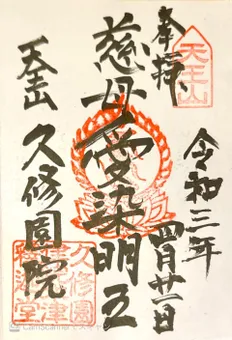 奉拝
天王山
令和三年
四月廿一日
慈母愛染明王
天王山
久修園院
久修園
釈迦堂
CamScanner